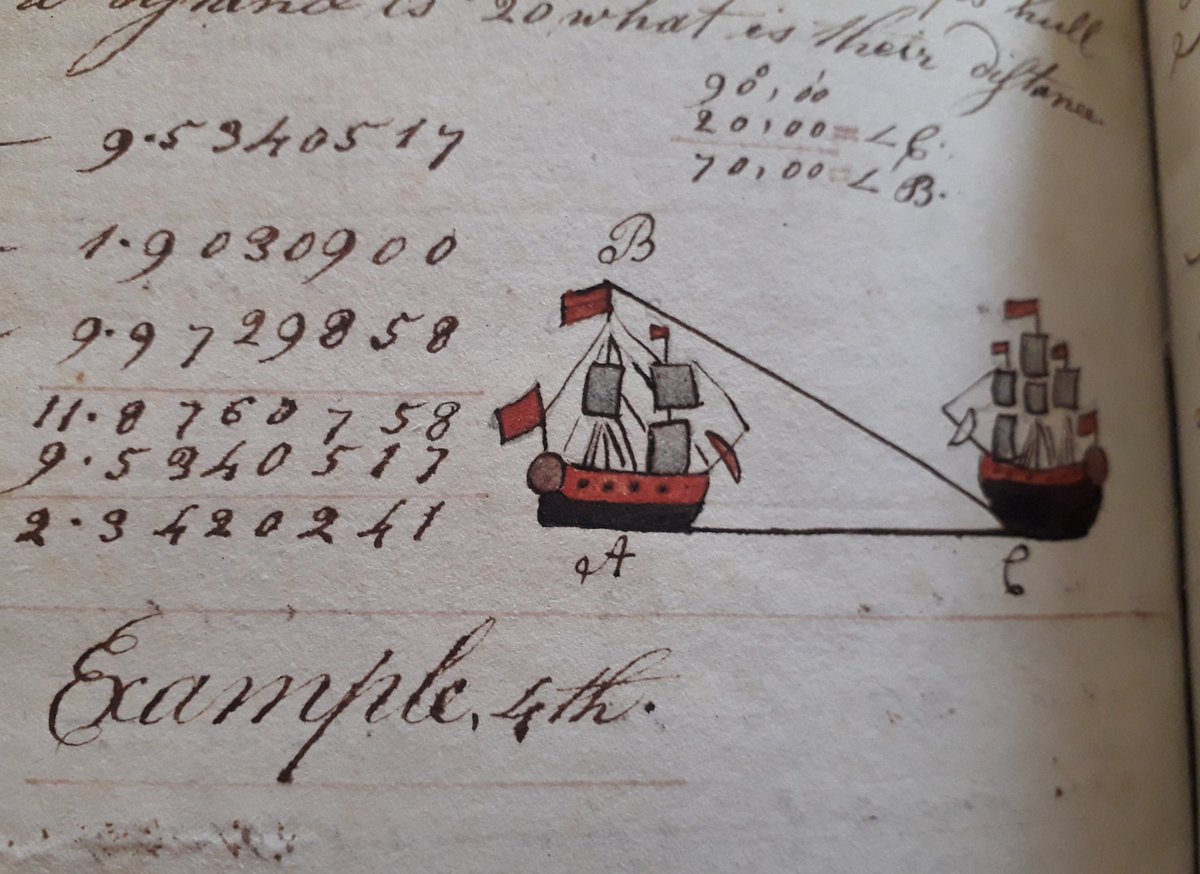 is 20 what is their distance
hull
9.5340517
90°, 00'
20,00 = ∠ C.
70,00 = ∠ B.
1.9030900
9.9729858
11.8760758
9.5340517
2.3420241
B
A
C
Example, 4th.